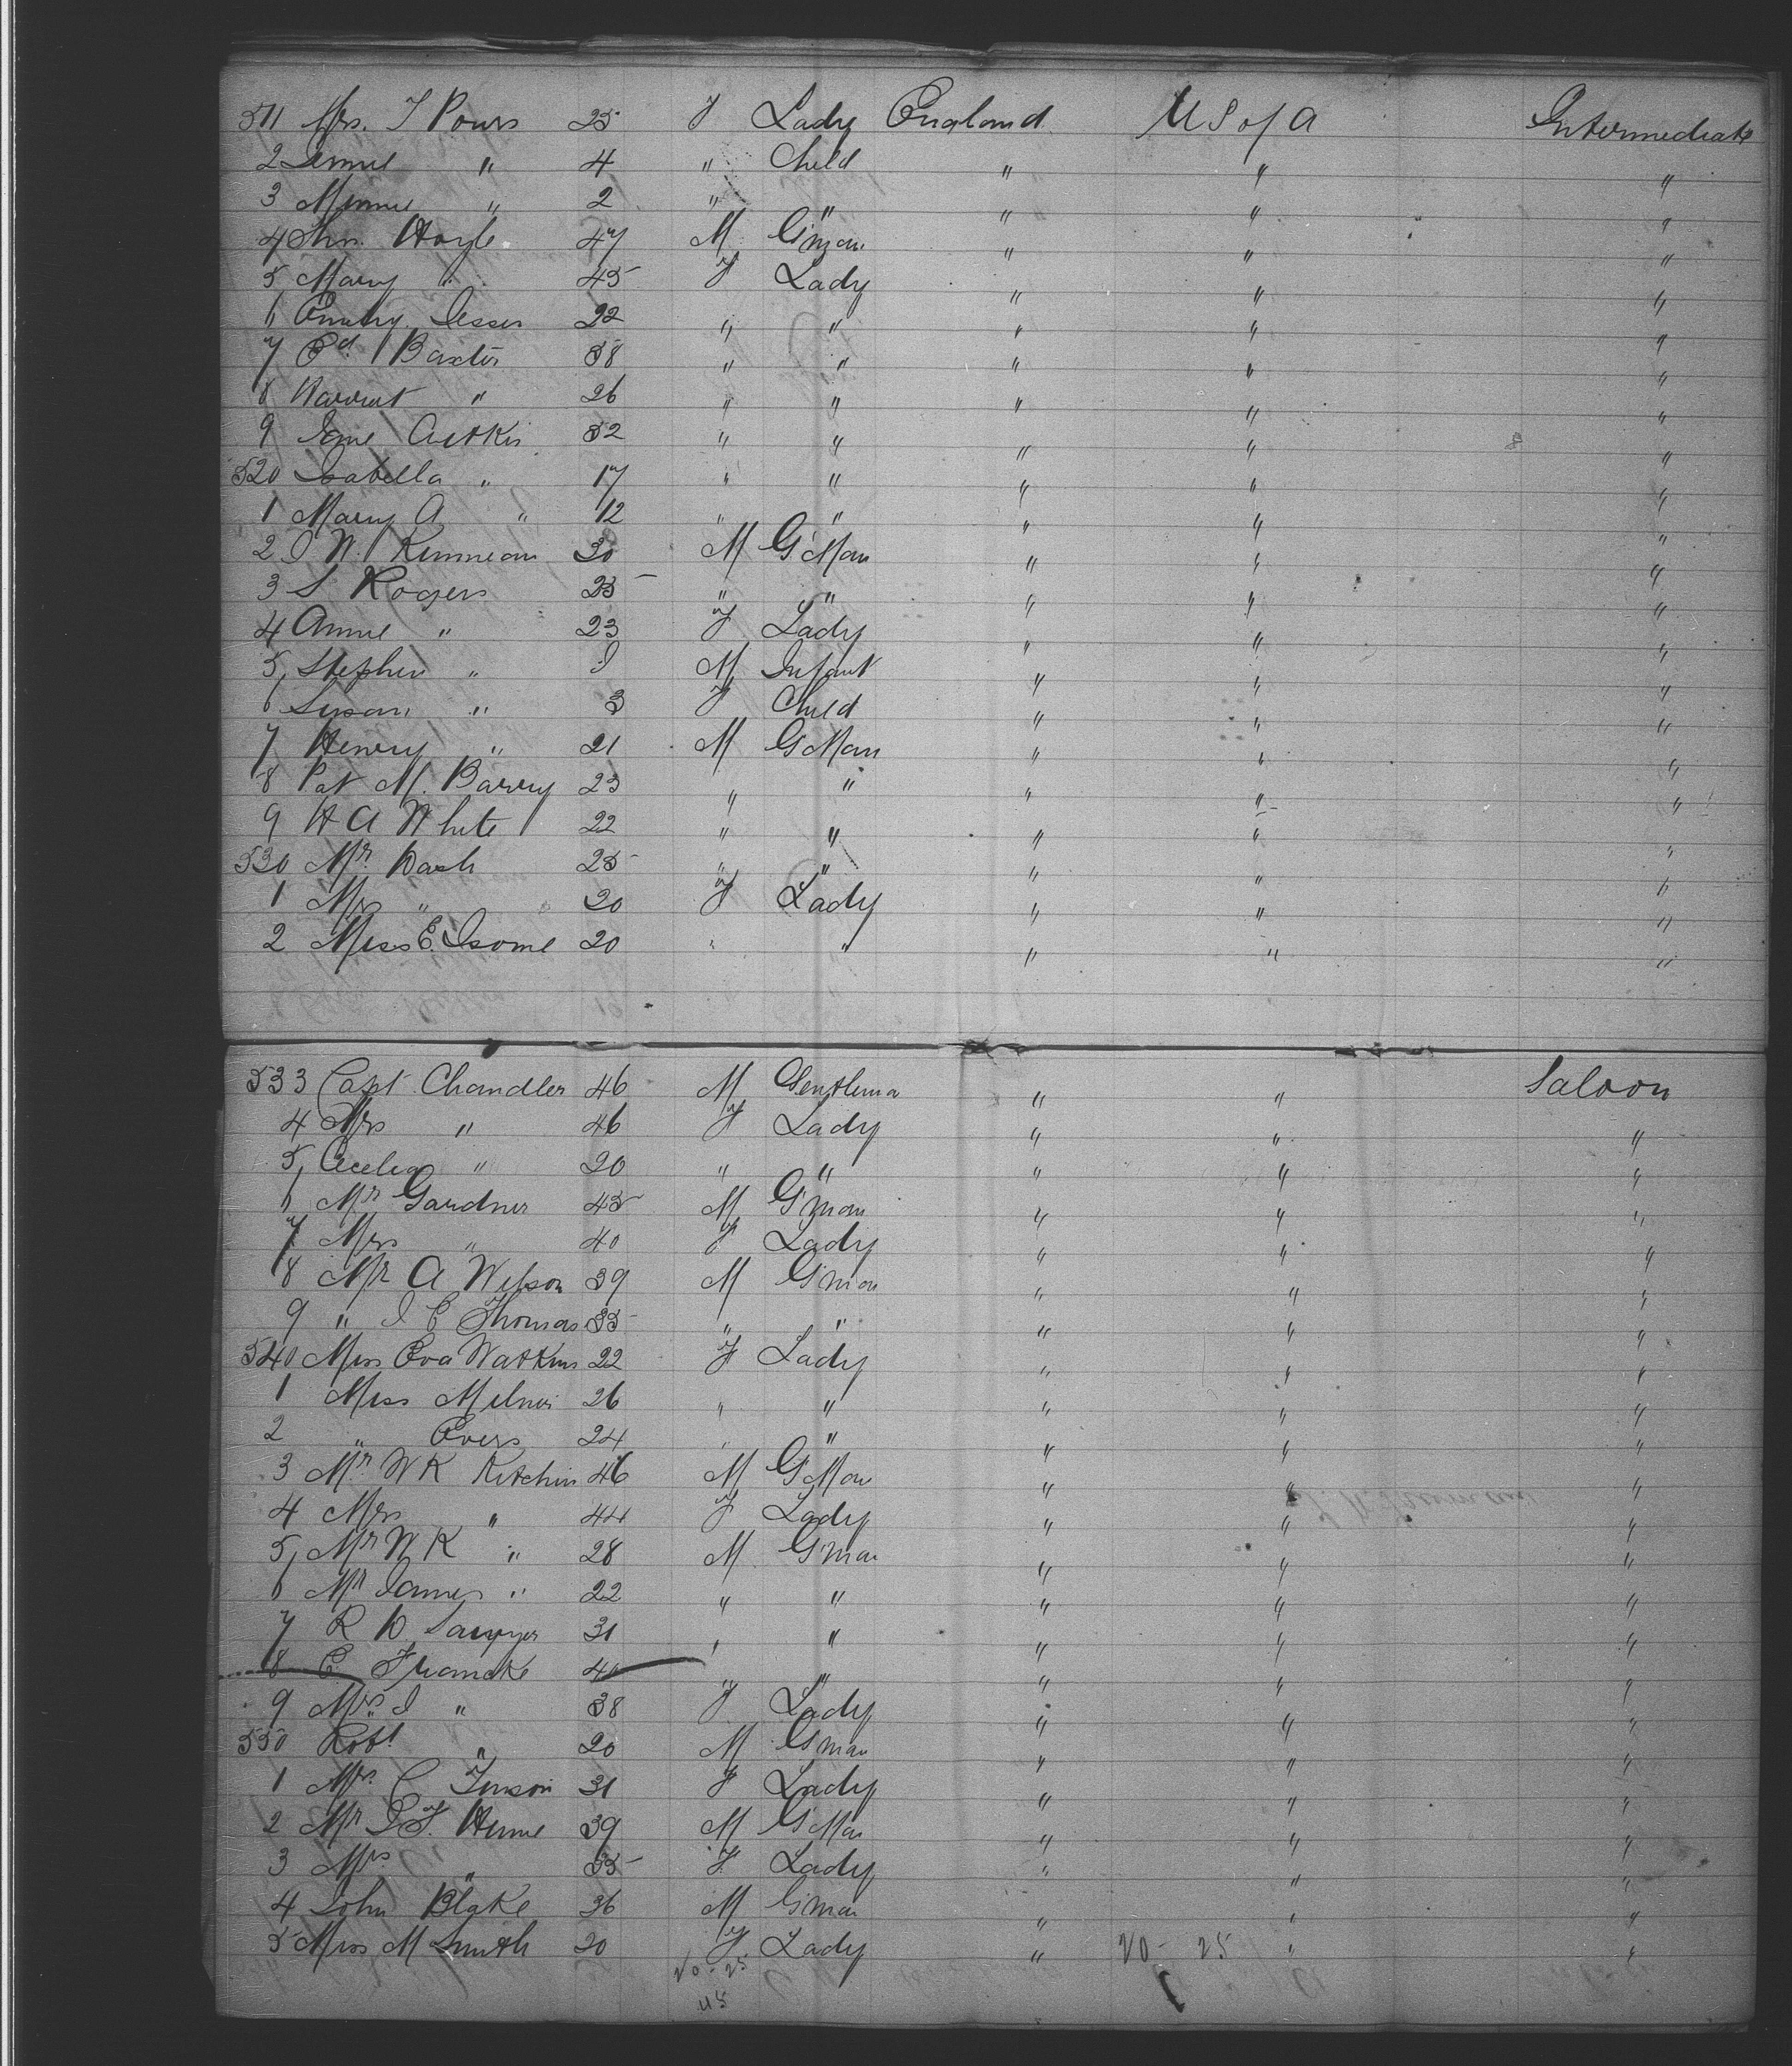 511 Mrs. T Pours 25 F Lady England U S of A Intermediate
2 Jennie " 4 " Child " " "
3 Minnie " 2 " " " " "
4 Jno. Hoyle 47 M G'man " " "
5 Mary " 45 F Lady " " "
6 22 " " " " "
7 Ed. Baxter 38 " " " " "
8 Harriet " 26 " " " " "
9 Jane 52 " " " " "
520 Isabella " 17 " " " " "
1 Mary A " 12 " " " " "
2 J W. Kinnean 30 M G'Man " " "
3 S Rogers 25 " " " " "
4 Annie " 23 F Lady " " "
5 Stephen " M Infant " " "
6 Susan " 3 F Child " " "
7 Henry " 21 M G'Man " " "
8 Pat M. Barry 23 " " " " "
9 H A White 22 " " " " "
530 Mr. Dash 25 " " " " "
1 Mrs " 20 F Lady " " "
2 Miss E. Isome 20 " " " " "
533 Capt. Chandler 46 M Gentleman " " Saloon
4 Mrs " 46 F Lady " " "
5 Cecelia " 20 " " " " "
6 Mr Gardner 45 M G'man " " "
7 Mrs " 40 F Lady " " "
8 Mr A Wilson 39 M G'man " " "
9 " J C Thomas 35 " " " " "
540 Miss Eva Watkins 22 F Lady " " "
1 Miss Milner 26 " " " " "
2 " Evers 24 " " " " "
3 Mr. W K Kitchin 46 M G'Man " " "
4 Mrs " 44 F Lady " " "
5 Mr W K " 28 M G'man " " "
6 Mr James " 22 " " " " "
7 R D. Sawyer 31 " " " " "
8 C Francke 40 " " " " "
9 Mrs. J " 38 F Lady " " "
550 Robt " 20 M G'man " " "
1 Mrs. C 31 F Lady " " "
2 Mr J. T. Hume 39 M G'Man " " "
3 Mrs. " 35 F Lady " " "
4 John Blake 36 M G'man " " "
5 Miss M Smith 20 F. Lady " 20 - 25 " "
20 - 25
45